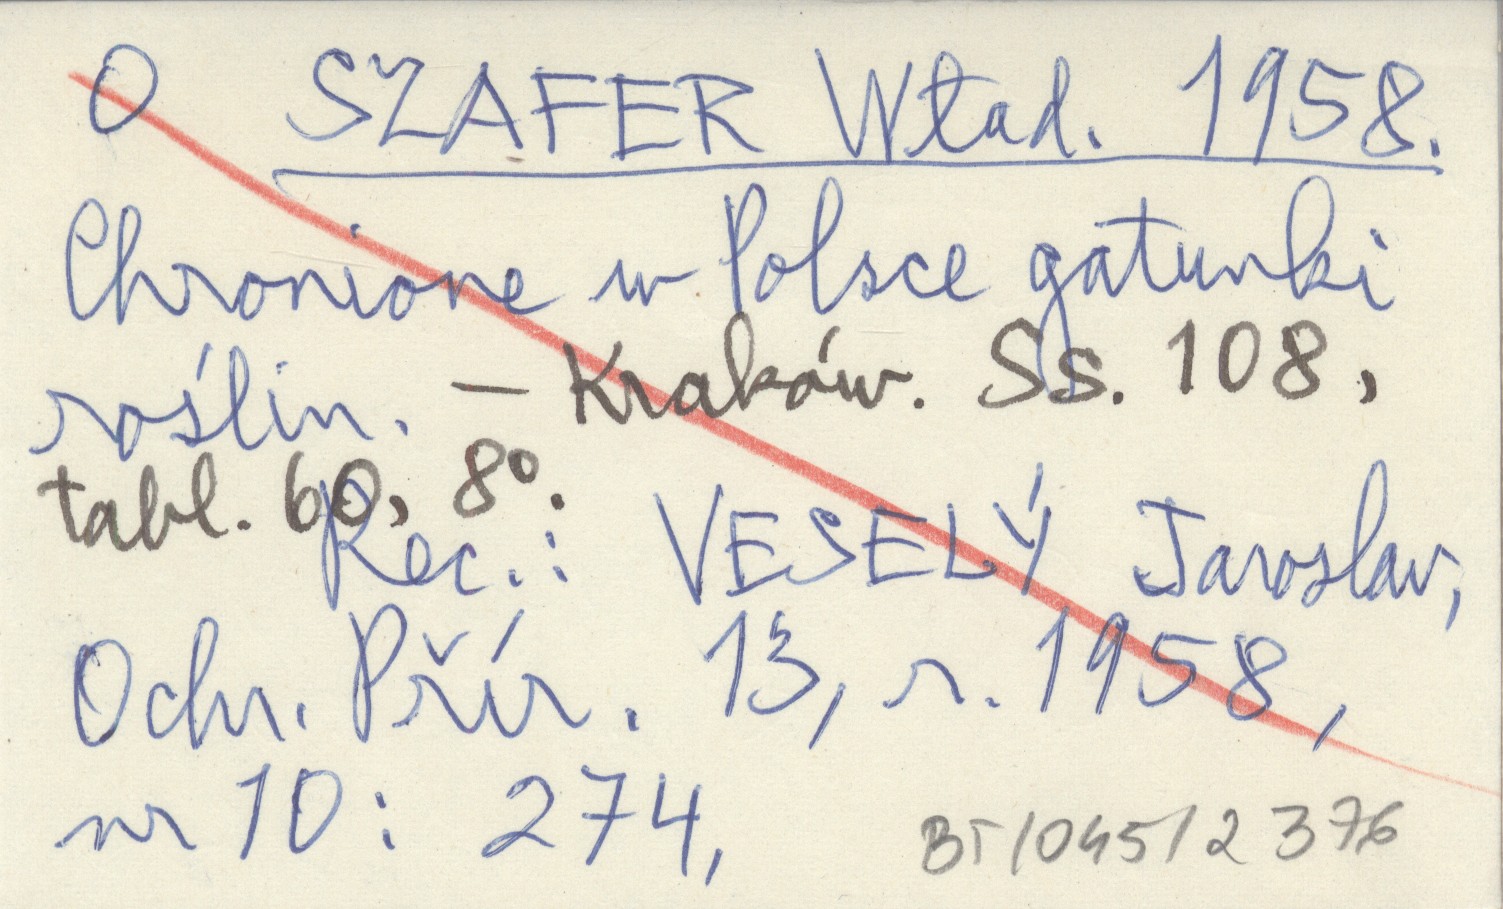 O SZAFER Wład. 1958.
Chronione w Polsce gatunki
roślin. — Kraków. Ss. 108,
tabl. 60, 8º.
Rec.: VESELÝ Jaroslav,
Ochr. Přír. 13, r. 1958,
nr 10: 274,
BT/045/2376